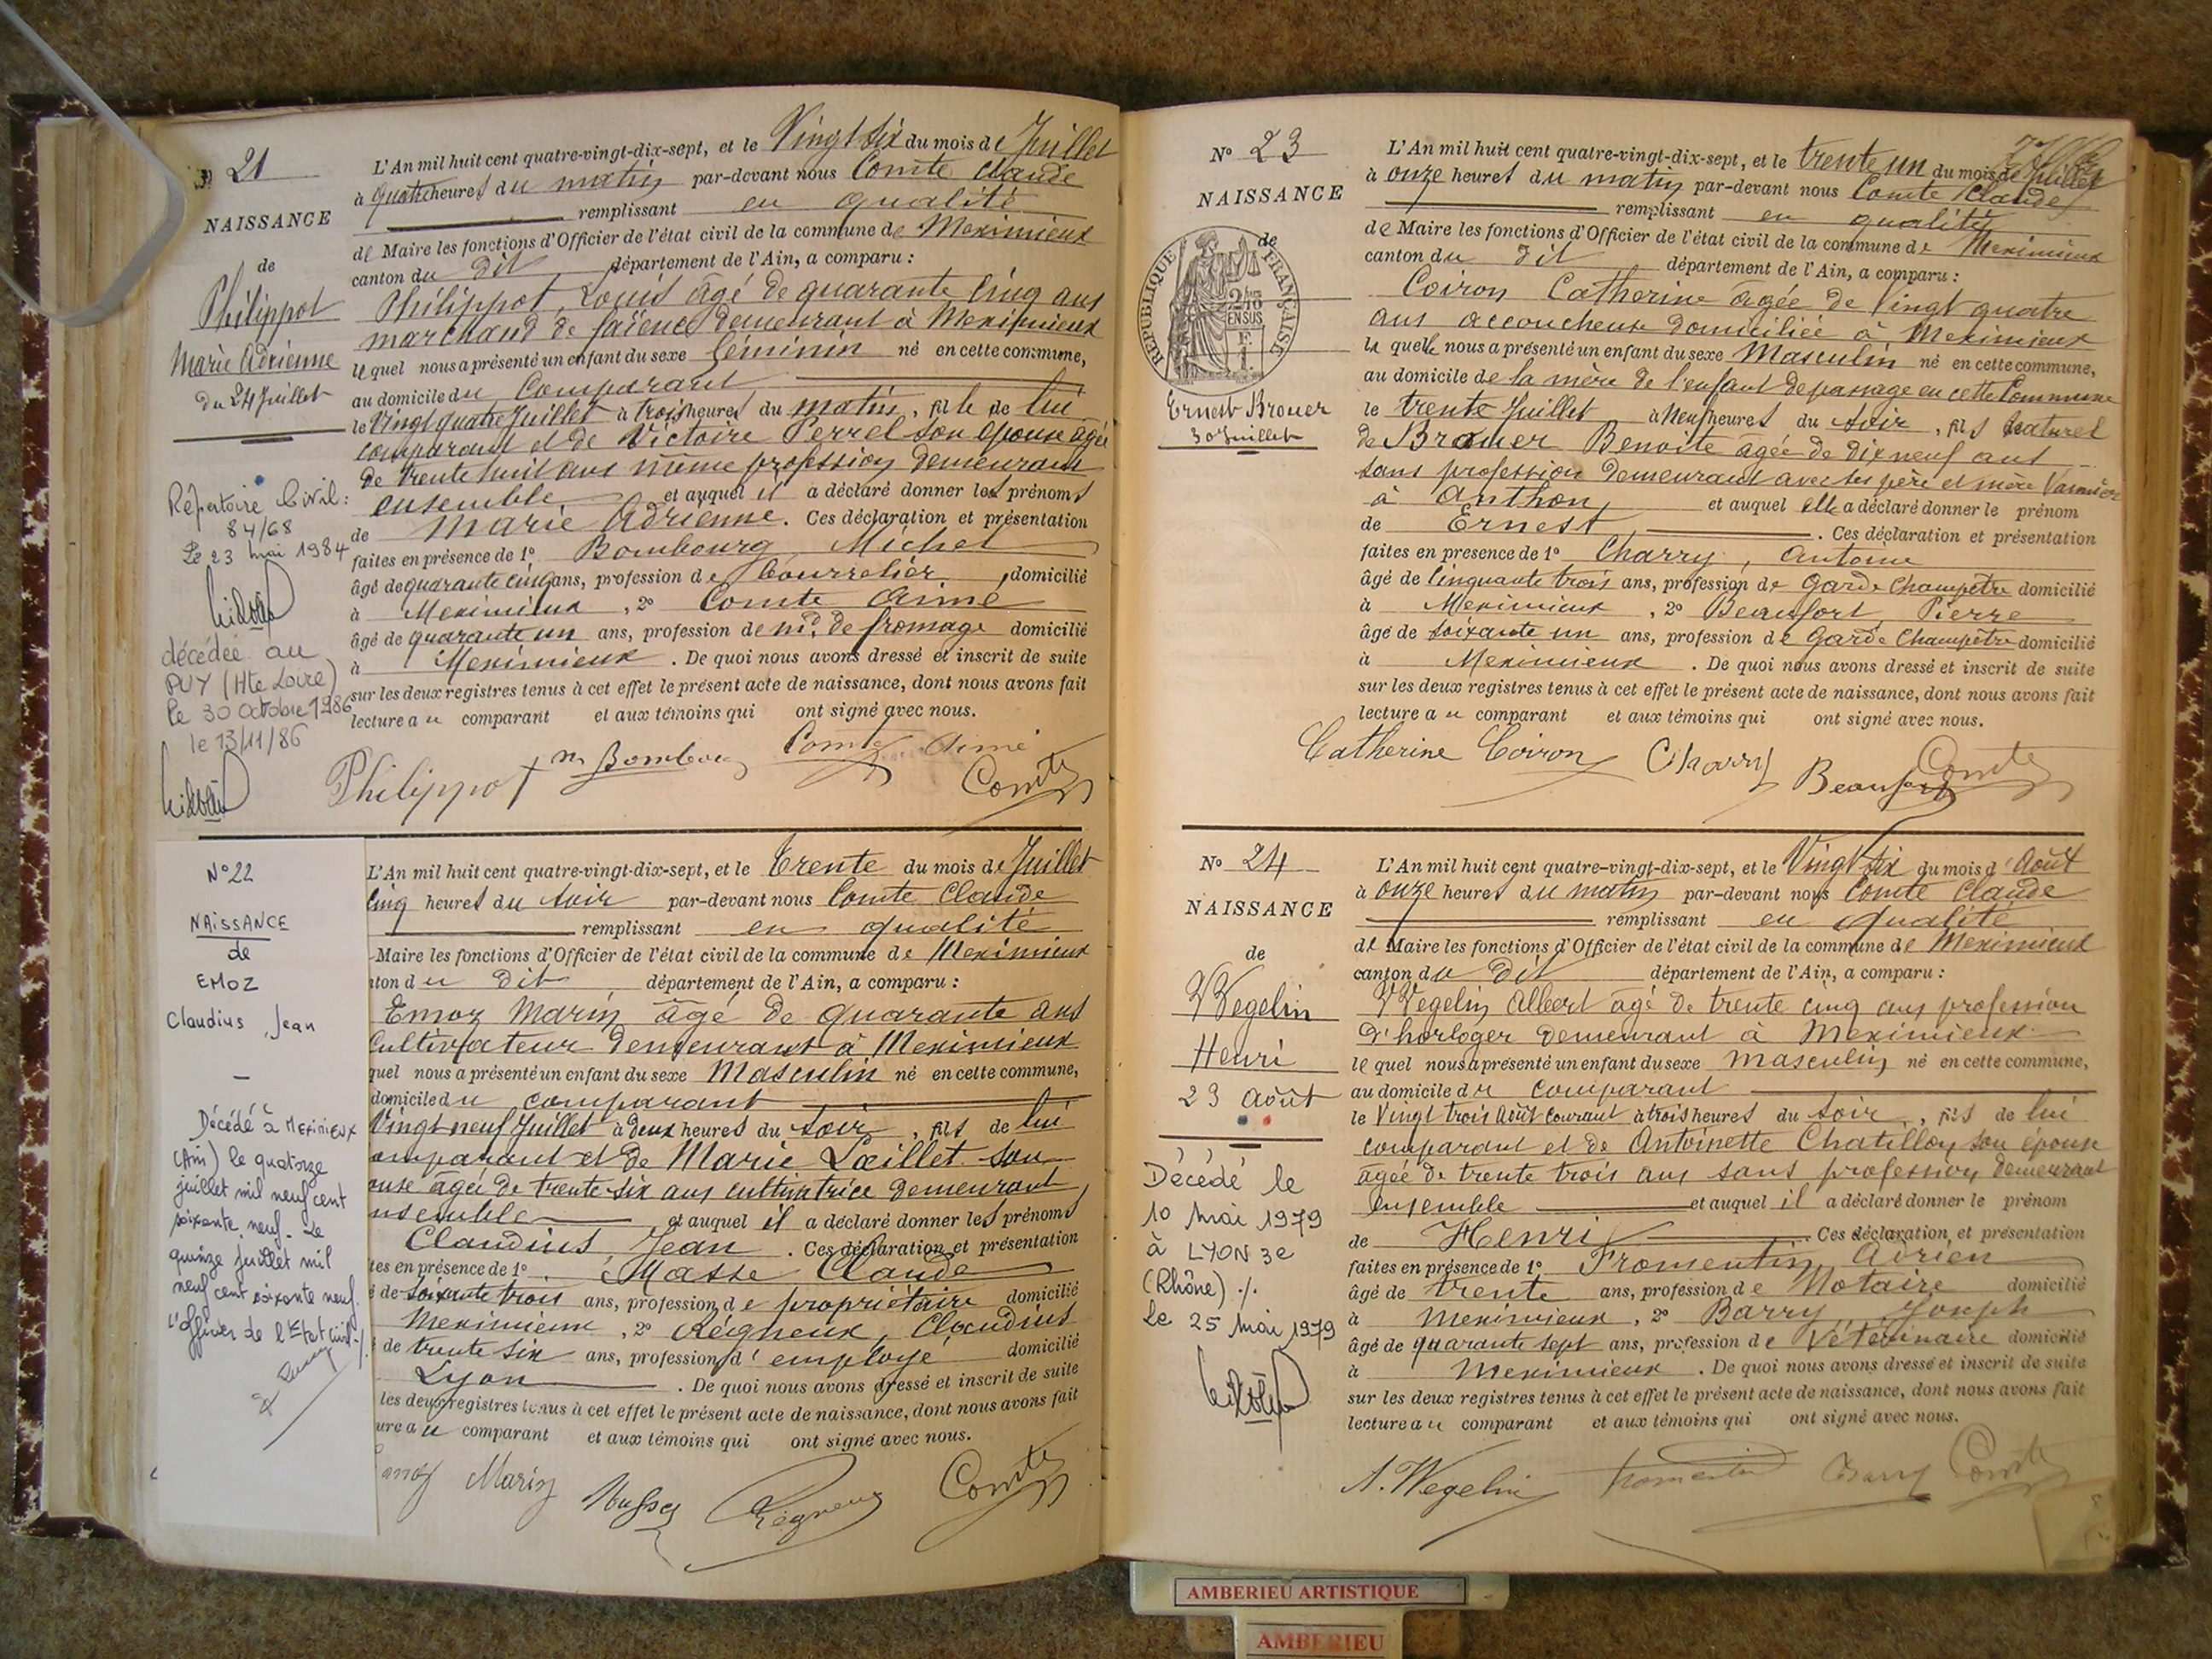 21
NAISSANCE
de
Philippot
Marie Adrienne
du 24 Juillet
Répertoire Civil :
84/68
Le 23 mai 1984
décédée au
PUY (Hte Loire)
le 30 Octobre 1986
le 13/11/86
L'An mil huit cent quatre-vingt-dix-sept, et le Vingt six du mois de Juillet
à quatre heures du matin par-devant nous Comte Claude
remplissant en qualité
de Maire les fonctions d'Officier de l'état civil de la commune de Meximieux
canton du dit département de l'Ain, a comparu :
Philippot Louis âgé de quarante cinq ans
marchand de faïence demeurant à Meximieux
lequel nous a présenté un enfant du sexe féminin né en cette commune,
au domicile du Comparant
le Vingt quatre Juillet à trois heures du matin, fille de lui
comparant et de Victoire Perrel son épouse agée
de trente huit ans même profession demeurant
ensemble et auquel il a déclaré donner les prénoms
de Marie Adrienne. Ces déclaration et présentation
faites en présence de 1° Bombourg Michel
âgé de quarante cinq ans, profession de bourrelier, domicilié
à Meximieux, 2° Comte Aimé
âgé de quarante un ans, profession de md. de fromage domicilié
à Meximieux. De quoi nous avons dressé et inscrit de suite
sur les deux registres tenus à cet effet le présent acte de naissance, dont nous avons fait
lecture au comparant et aux témoins qui ont signé avec nous.
Philippot m Bombourg Comte Aimé
Comte
N° 22
NAISSANCE
de
EMOZ
Claudius, Jean
Décédé à Meximieux
(Ain) le quatorze
juillet mil neuf cent
soixante neuf. Le
quinze juillet mil
neuf cent soixante neuf.
L'officier de l'Etat civil
L'An mil huit cent quatre-vingt-dix-sept, et le trente du mois de Juillet
cinq heures du soir par-devant nous Comte Claude
remplissant en qualité
Maire les fonctions d'Officier de l'état civil de la commune de Meximieux
nton du dit département de l'Ain, a comparu :
Emoz Marin âgé de quarante ans
Cultivateur demeurant à Meximieux
quel nous a présenté un enfant du sexe Masculin né en cette commune,
domicile du comparant
Vingt neuf Juillet à deux heures du soir, fils de lui
omparant et de Marie Lœillet son
ouse agée de trente six ans cultivatrice demeurant
nsemble et auquel il a déclaré donner les prénoms
Claudius, Jean. Ces déclaration et présentation
tes en présence de 1° Masse Claude
é de soixante trois ans, profession de propriétaire domicilié
Meximieux, 2° Régneux, Claudius
é de trente six ans, profession d'employé domicilié
Lyon. De quoi nous avons dressé et inscrit de suite
les deux registres tenus à cet effet le présent acte de naissance, dont nous avons fait
ure au comparant et aux témoins qui ont signé avec nous.
Marin Régneux Comte
N° 23
NAISSANCE
de
RÉPUBLIQUE FRANÇAISE
Ernest Brouer
30 Juillet
L'An mil huit cent quatre-vingt-dix-sept, et le trente un du mois de Juillet
à onze heures du matin par-devant nous Comte Claude
remplissant en qualité
de Maire les fonctions d'Officier de l'état civil de la commune de Meximieux
canton du dit département de l'Ain, a comparu :
Coiron Catherine agée de Vingt quatre
ans accoucheuse domiciliée à Meximieux
laquelle nous a présenté un enfant du sexe Masculin né en cette commune,
au domicile de la mère de l'enfant de passage en cette Commune
le trente Juillet à Neuf heures du soir, fils naturel
de Brouer Benoite agée de dix neuf ans
sans profession demeurant avec ses père et mère
à Anthon et auquel elle a déclaré donner le prénom
de Ernest. Ces déclaration et présentation
faites en presence de 1° Charry, Antoine
âgé de cinquante trois ans, profession de Garde Champêtre domicilié
à Meximieux, 2° Beaufort Pierre
âgé de soixante un ans, profession de Garde Champêtre domicilié
à Meximieux. De quoi nous avons dressé et inscrit de suite
sur les deux registres tenus à cet effet le présent acte de naissance, dont nous avons fait
lecture au comparant et aux témoins qui ont signé avec nous.
Catherine Coiron Charry Beaufort Comte
N° 24
NAISSANCE
de
Wegelin
Henri
23 Août
Décédé le
10 mai 1979
à LYON 3e
(Rhône) ./.
Le 25 mai 1979
L'An mil huit cent quatre-vingt-dix-sept, et le Vingt six du mois d'Août
à onze heures du matin par-devant nous Comte Claude
remplissant en qualité
de Maire les fonctions d'Officier de l'état civil de la commune de Meximieux
canton du dit département de l'Ain, a comparu :
Wegelin Albert âgé de trente cinq ans profession
d'horloger demeurant à Meximieux
lequel nous a présenté un enfant du sexe masculin né en cette commune,
au domicile du comparant
le Vingt trois Août courant à trois heures du soir, fils de lui
comparant et de Antoinette Chatillon son épouse
agée de trente trois ans sans profession demeurant
ensemble et auquel il a déclaré donner le prénom
de Henri Ces déclaration et présentation
faites en présence de 1° Fromentin Adrien
âgé de trente ans, profession de Notaire domicilié
à Meximieux, 2° Barry Joseph
âgé de quarante sept ans, profession de Vétérinaire domicilié
à Meximieux. De quoi nous avons dressé et inscrit de suite
sur les deux registres tenus à cet effet le présent acte de naissance, dont nous avons fait
lecture au comparant et aux témoins qui ont signé avec nous.
A. Wegelin Fromentin Barry Comte
AMBERIEU ARTISTIQUE
AMBERIEU